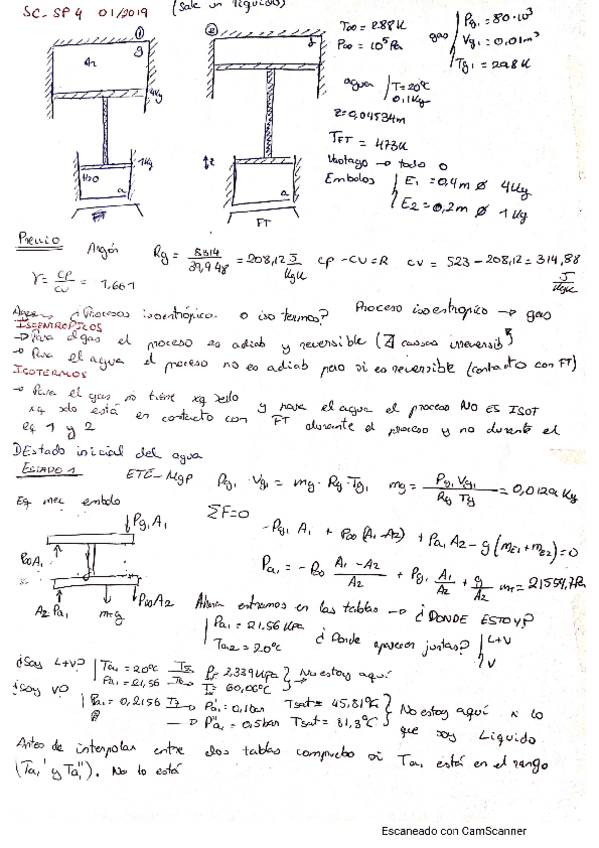 SC. SP4 01/2019 (sale un líquido)
① ②
g g
Az
4Kg
1Kg
H2O
a a
z
FT FT
T∞ = 288K
P∞ = 10⁵ Pa
gas | Pg1 = 80·10³
Vg1 = 0,01m³
Tg1 = 298K
agua | T=20ºC
0,1Kg
z=0,04534m
TFT = 473K
todo 0
Embolos | E1 = 0,4m ø 4Kg
E2 = 0,2m ø 1Kg
Previo Argón Rg = 8314/39,948 = 208,12 J/KgK cp - cv = R cv = 523 - 208,12 = 314,88 J/KgK
γ = cp/cv = 1,661
Agua ¿Procesos isoentrópicos o isotermos? Proceso isoentropico → gas
ISOENTROPICOS
→ Para el gas el proceso es adiab y reversible (∄ causas irreversib)
→ Para el agua el proceso no es adiab pero si es reversible (contacto con FT)
ISOTERMOS
→ Para el gas no tiene xq serlo y para el agua el proceso NO ES ISOT
xq solo está en contacto con FT durante el proceso y no durante el
eq 1 y 2
1) Estado inicial del agua
ESTADO 1 ETE-MgP Pg1 · Vg1 = mg · Rg · Tg1 mg = Pg1 Vg1 / Rg Tg = 0,0129 Kg
Eq mec embolo ΣF=0
Pg1 A1
P∞A1
A2 Pa1 mTg P∞A2
-Pg1 A1 + P∞ (A1-A2) + Pa1 A2 - g (mE1+mE2) = 0
Pa1 = -P∞ (A1 - A2)/A2 + Pg1 A1/A2 + g/A2 mT = 21559,7 Pa
Ahora entramos en las tablas → ¿DONDE ESTOY?
| Pa1 = 21,56 KPa
Ta1 = 20ºC
¿Donde aparecen juntas? | L+V
V
¿Soy L+V? | Ta1 = 20ºC → P = 2,339 KPa } No estoy aquí
Pa1 = 21,56 → T = 60,00ºC
¿Soy V? | Pa1 = 0,2156 → Pa1' = 0,1bar Tsat = 45,81ºC } No estoy aquí x lo
→ Pa1'' = 0,5bar Tsat = 81,3ºC que soy Líquido
Antes de interpolar entre dos tablas compruebo si Ta1 está en el rango
(Ta1' y Ta1''). No lo está
Escaneado con CamScanner